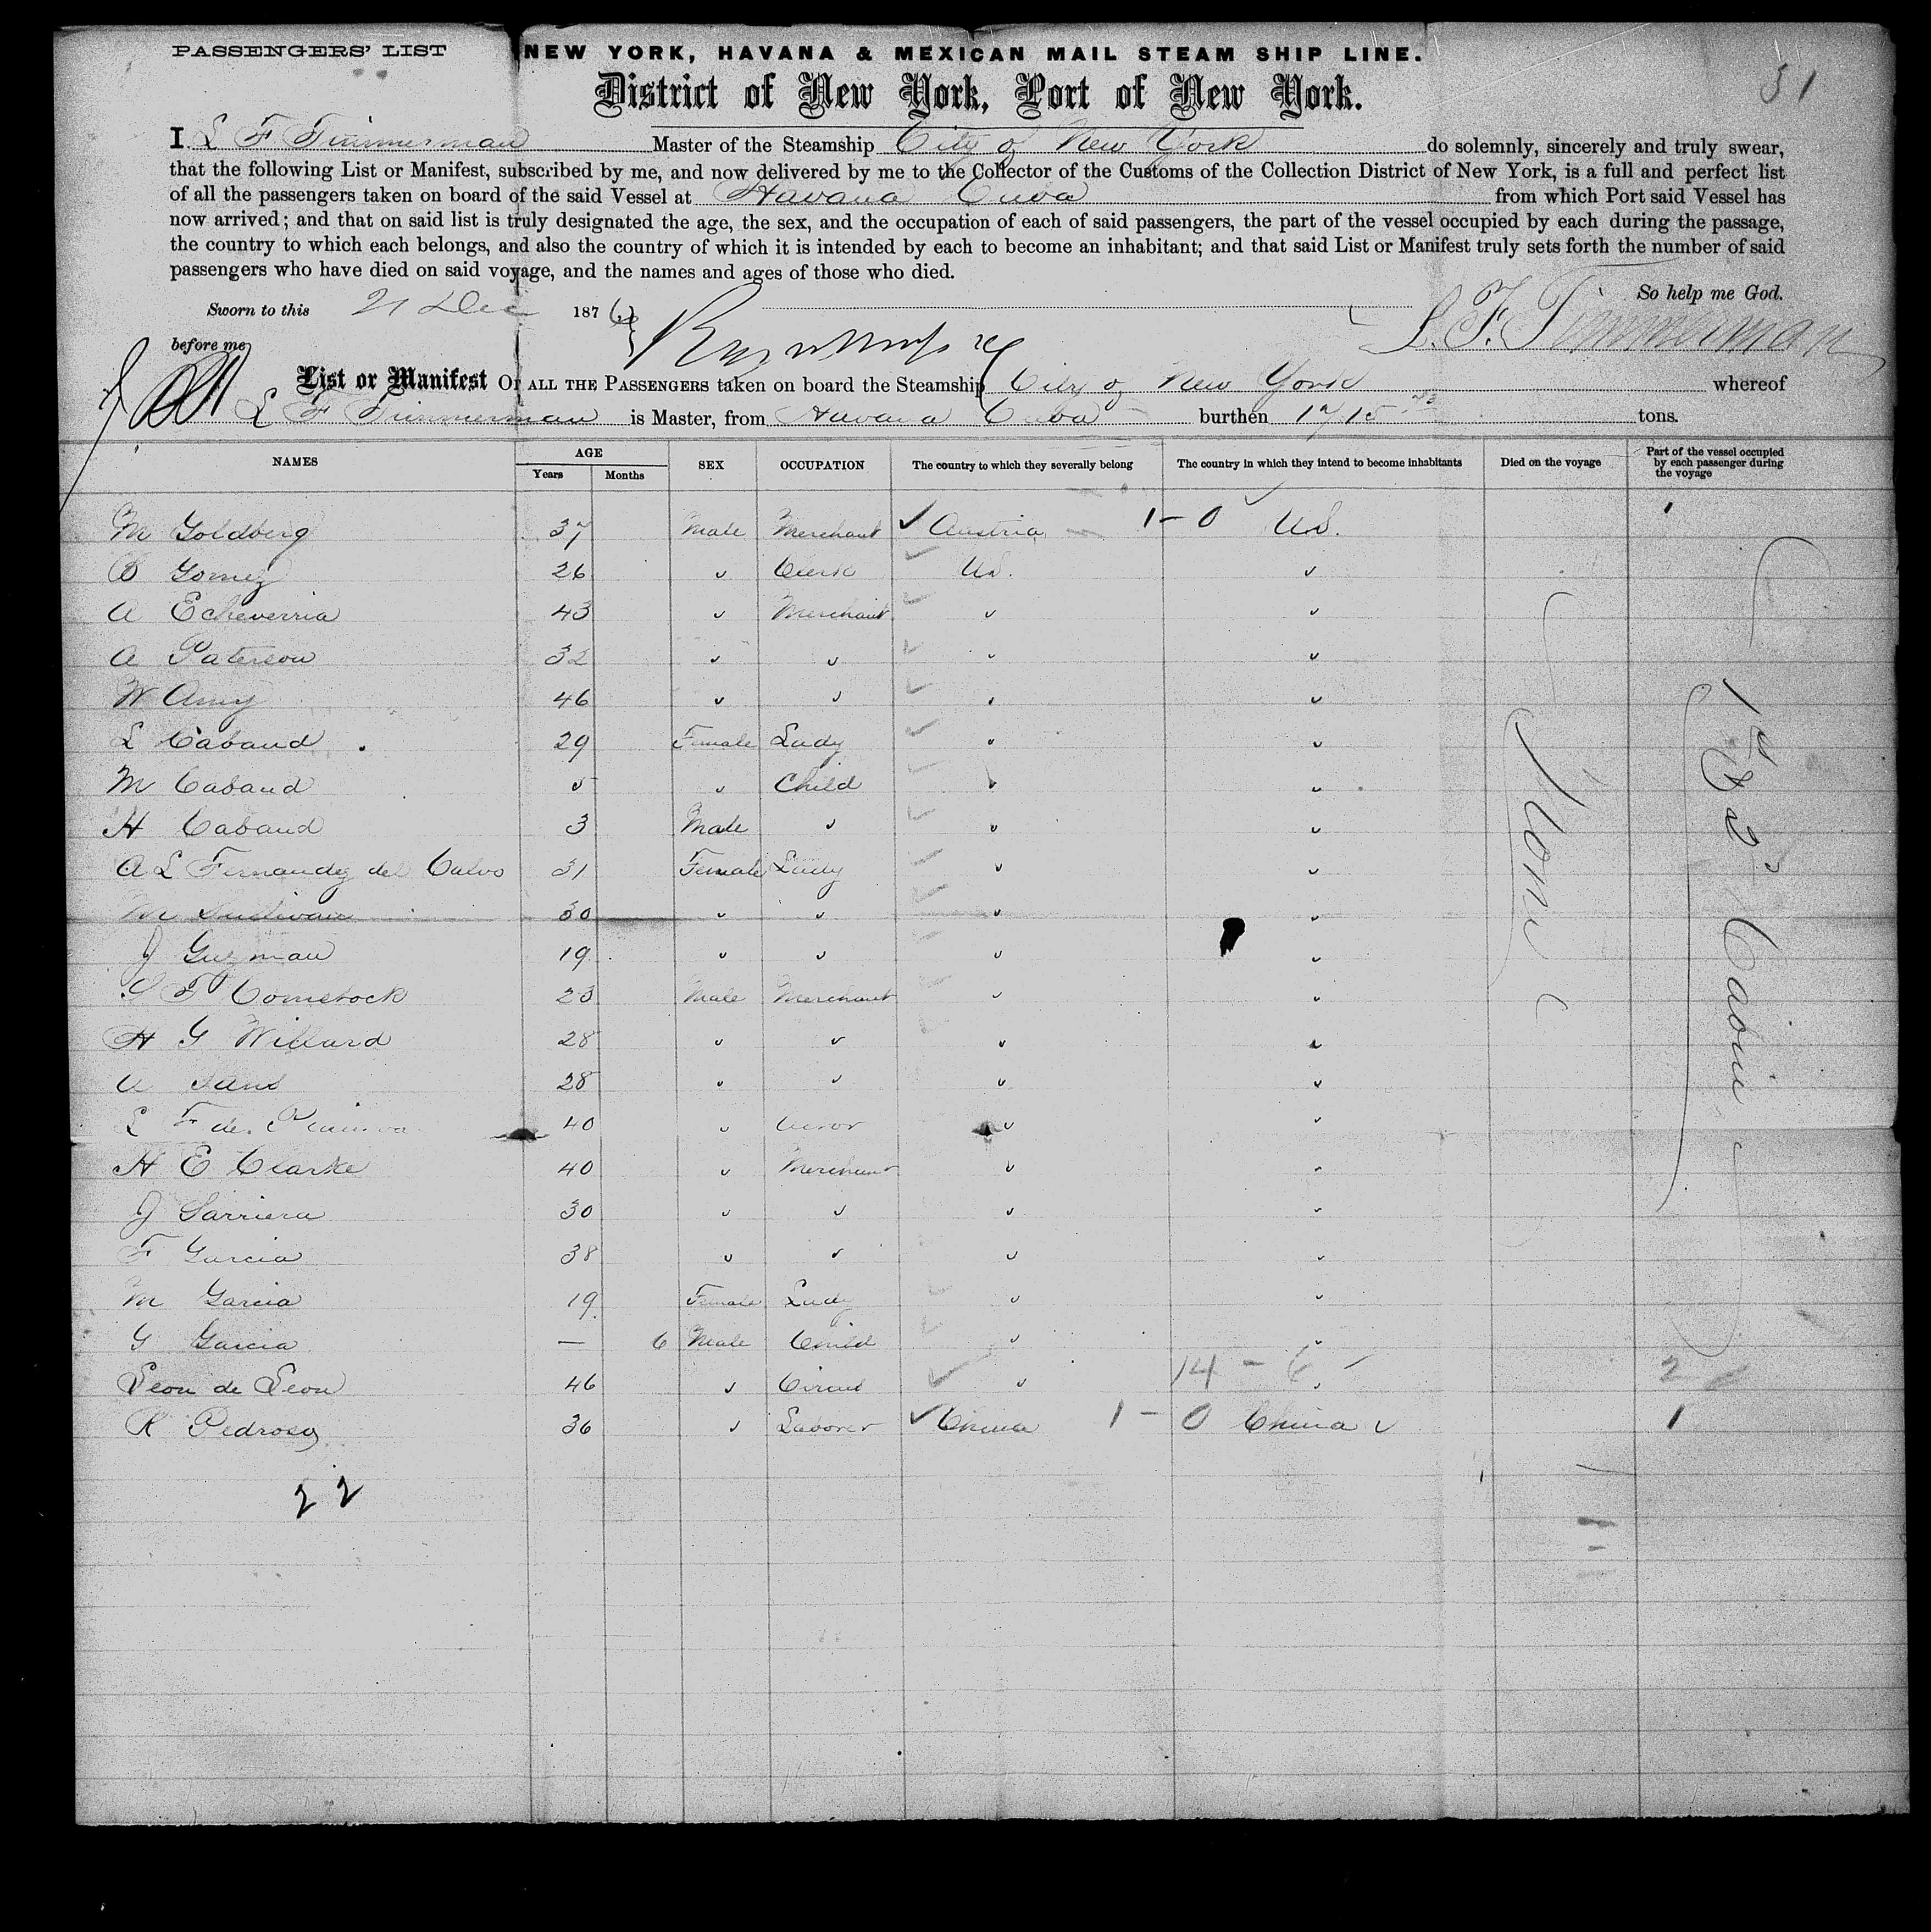 PASSENGERS' LIST NEW YORK, HAVANA & MEXICAN MAIL STEAM SHIP LINE.
51
District of New York, Port of New York.
I L F Timmerman Master of the Steamship City of New York do solemnly, sincerely and truly swear,
that the following List or Manifest, subscribed by me, and now delivered by me to the Collector of the Customs of the Collection District of New York, is a full and perfect list
of all the passengers taken on board of the said Vessel at Havana Cuba from which Port said Vessel has
now arrived; and that on said list is truly designated the age, the sex, and the occupation of each of said passengers, the part of the vessel occupied by each during the passage,
the country to which each belongs, and also the country of which it is intended by each to become an inhabitant; and that said List or Manifest truly sets forth the number of said
passengers who have died on said voyage, and the names and ages of those who died.
So help me God.
Sworn to this 21 Dec 1876
L. F. Timmerman
before me
List or Manifest OF ALL THE PASSENGERS taken on board the Steamship City of New York whereof
L F Timmerman is Master, from Havana Cuba burthen 1715 tons.
NAMES AGE Years Months SEX OCCUPATION The country to which they severally belong The country in which they intend to become inhabitants Died on the voyage Part of the vessel occupied by each passenger during the voyage
M Goldberg 37 Male Merchant ✓ Austria 1-0 US. 1
B Gomez 26 " Clerk ✓ US. "
A Echeverria 43 " Merchant ✓ " "
A Paterson 32 " " ✓ " "
W Amy 46 " " ✓ " "
L Cabaud 29 Female Lady ✓ " "
M Cabaud 5 " Child ✓ " "
H Cabaud 3 Male " ✓ " "
A L Fernandez del Calvo 31 Female Lady ✓ " "
M Sullivan 30 " " ✓ " "
J Guzman 19 " " " "
S F Comstock 23 Male Merchant " "
H G Willard 28 " " " "
A Sans 28 " " " "
L F de 40 " " "
H E Clarke 40 " Merchant " "
J Sarriera 30 " " " "
F Garcia 38 " " " "
M Garcia 19 Female Lady " "
G Garcia — 6 Male Child " "
Leon de Leon 46 " ✓ " 14 - 6 " 2
R Pedroso 36 " Laborer ✓ China 1-0 China ✓ 1
None
1st & 2d Cabin
22